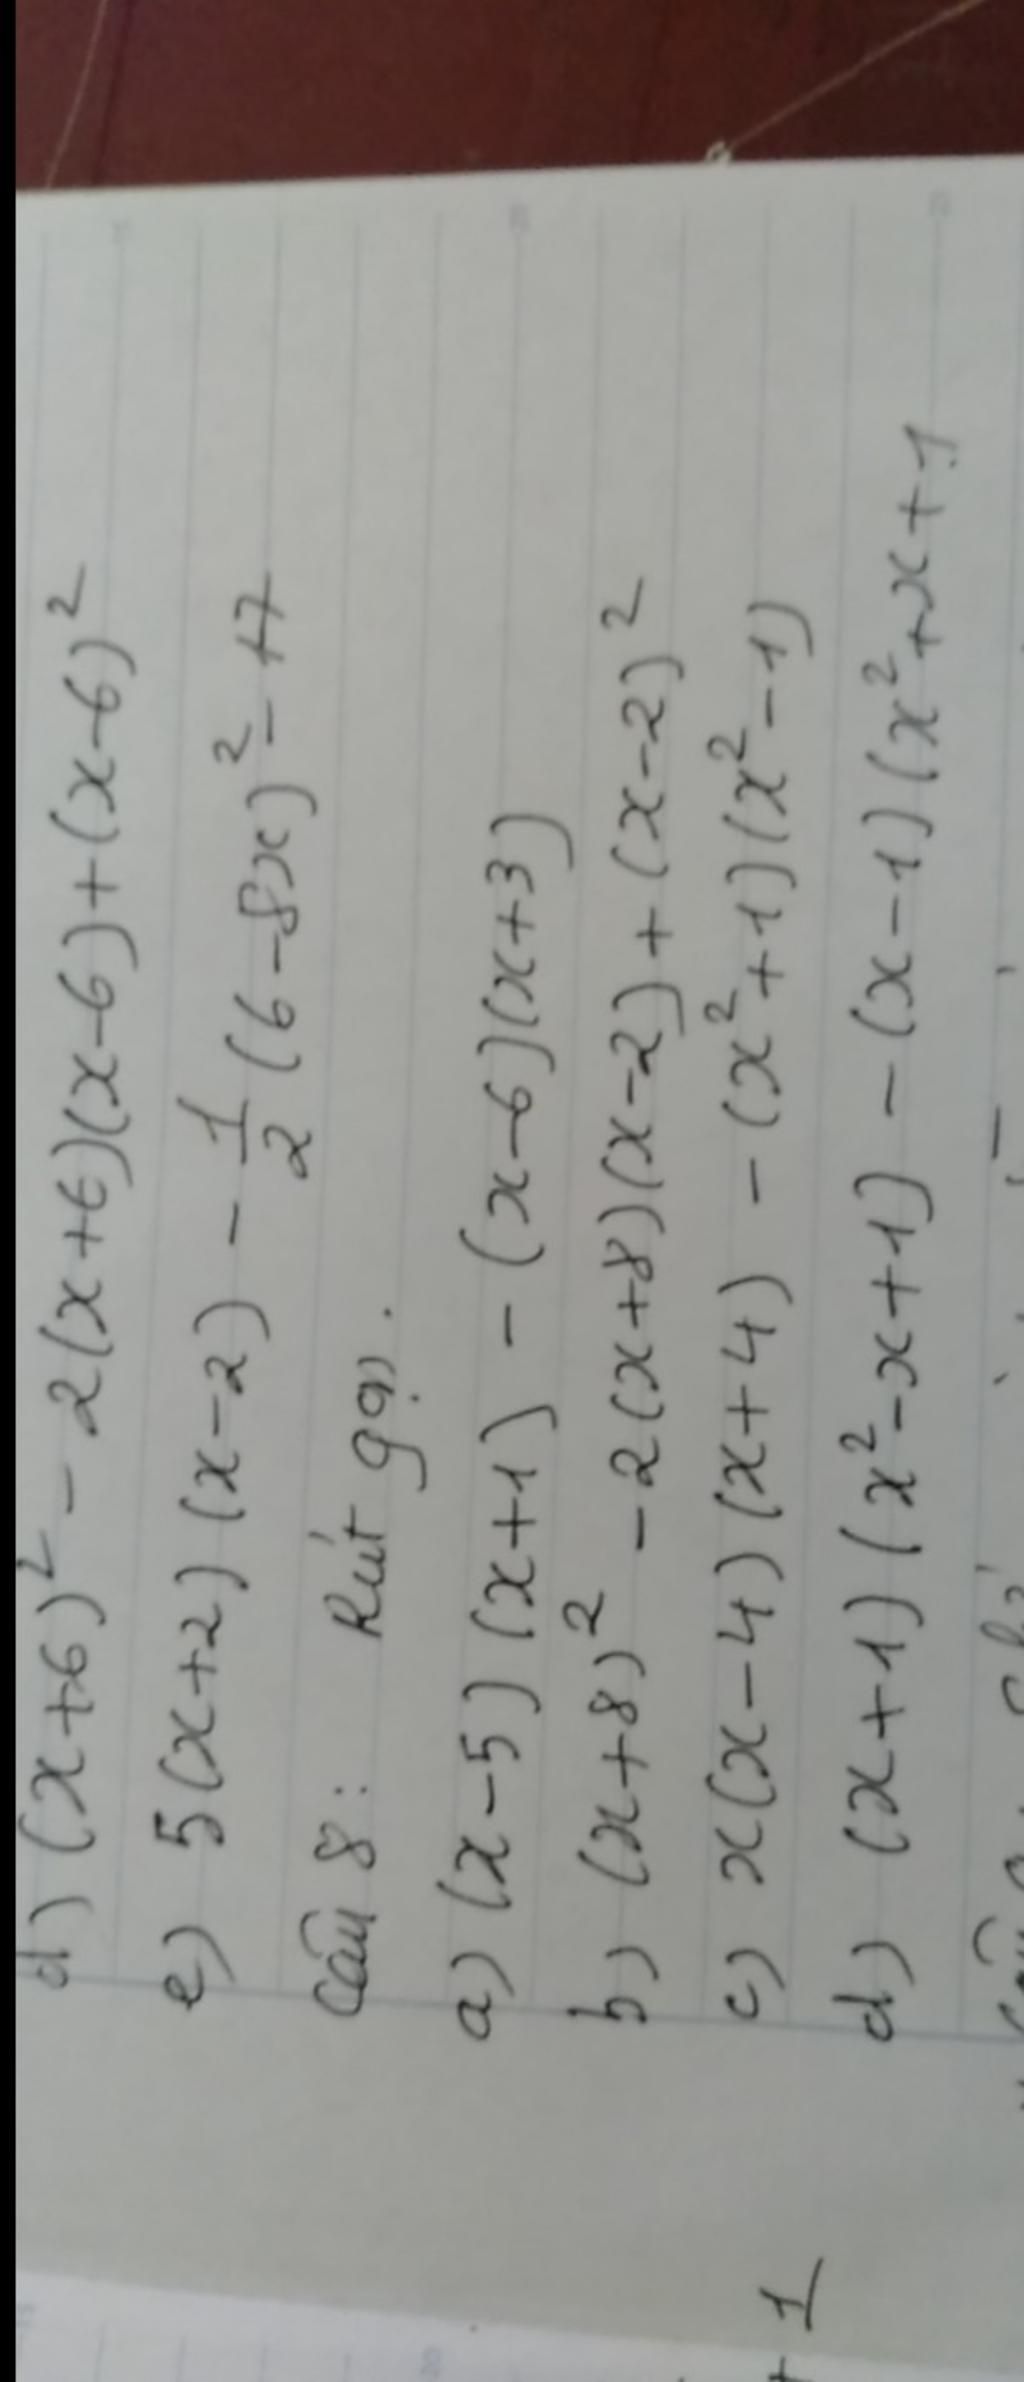 d) (x+6)² - 2(x+6)(x-6)+(x-6)²
e) 5(x+2)(x-2) - 1/2 (6-8x)² - 17
Câu 8: Rút gọn.
a) (x-5)(x+1) - (x-6)(x+3)
b) (x+8)² - 2(x+8)(x-2)+(x-2)²
c) x(x-4)(x+4) - (x²+1)(x²-1)
d) (x+1)(x²-x+1) - (x-1)(x²+x+1
+ 1